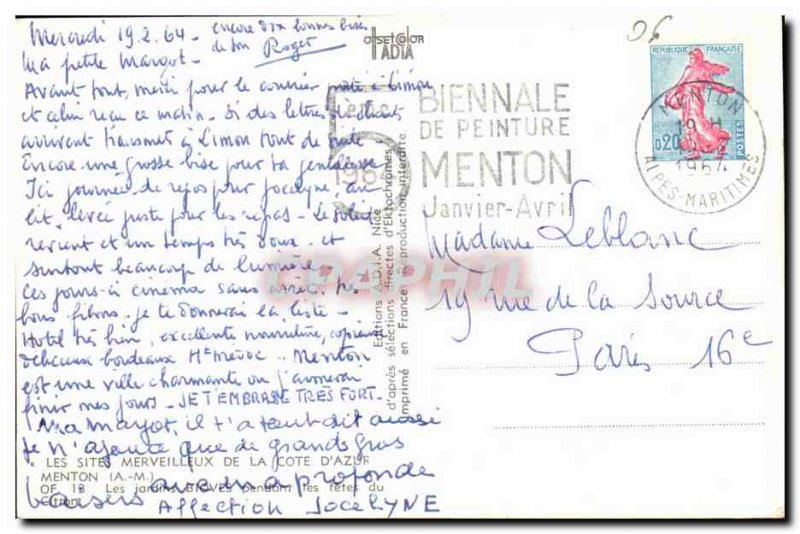 Mercredi 19.2.64 - encore dix bonnes bises
de ton Roger
Ma petite Margot -
Avant tout, merci pour le courrier posté à Limon
et celui reçu ce matin - Si des lettres
arrivent transmet à Limon tout de suite -
Encore une grosse bise pour ta gentillesse
Ici journée de repos pour Jocelyne, au
lit, levée juste pour les repas - Le soleil
revient et un temps très doux - et
surtout beaucoup de lumière
ces jours-ci cinéma sans arrêt, des
bons films - je te donnerai la liste -
Hotel très bien, excellente nourriture, copieuse
délicieux bordeaux Ht Médoc - Menton
est une ville charmante où j'aimerai
finir mes jours - JE T'EMBRASSE TRÈS FORT -
Ma Margot, il t'a tout dit aussi
je n'ajoute que de grands gros
baisers avec ma profonde
Affection JOCELYNE
LES SITES MERVEILLEUX DE LA COTE D'AZUR
MENTON (A.-M.)
OF 13 Les jardins BIOVES pendant les fêtes du
Citron
OFFSET COLOR
ADIA
Editions A.D.I.A. Nice
d'après sélections directes d'Ektachromes
Imprimé en France Reproduction interdite
CPAPHIL
5eme
1964
BIENNALE
DE PEINTURE
MENTON
Janvier-Avril
06
REPUBLIQUE FRANÇAISE
0,20
POSTES
MENTON
19 H
1964
ALPES-MARITIMES
Madame Leblanc
19 rue de la Source
Paris 16e